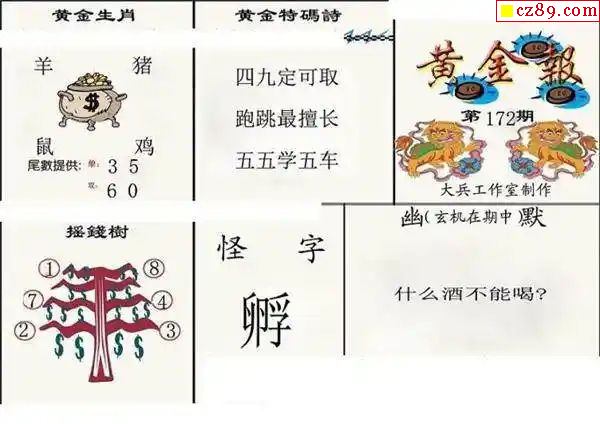 cz89.com
黄金生肖
羊 猪
$
鼠 鸡
尾數提供: 单: 3 5
双: 6 0
黄金特碼詩
四九定可取
跑跳最擅长
五五学五车
黄金報
第172期
大兵工作室制作
摇錢樹
① ⑧
⑦ ④
② ③
$ $ $ $ $ $ $ $ $ $ $ $
怪 字
孵
幽(玄机在期中)默
什么酒不能喝?